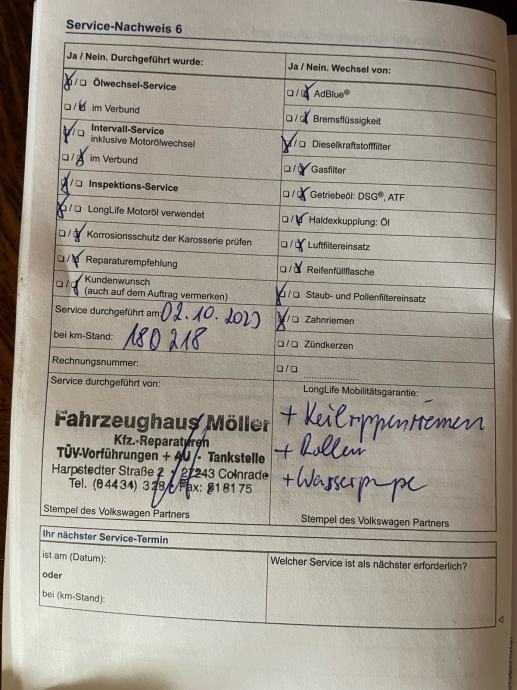 Service-Nachweis 6
Ja / Nein. Durchgeführt wurde:
☒/☐ Ölwechsel-Service
☐/☒ im Verbund
☒/☐ Intervall-Service
inklusive Motorölwechsel
☐/☒ im Verbund
☒/☐ Inspektions-Service
☒/☐ LongLife Motoröl verwendet
☐/☒ Korrosionsschutz der Karosserie prüfen
☐/☒ Reparaturempfehlung
☐/☒ Kundenwunsch
(auch auf dem Auftrag vermerken)
Service durchgeführt am 02.10.2023
bei km-Stand: 180 218
Rechnungsnummer:
Service durchgeführt von:
Fahrzeughaus Möller
Kfz.-Reparaturen
TÜV-Vorführungen + AU - Tankstelle
Harpstedter Straße 2 · 27243 Colnrade
Tel. (04434) Fax: 818175
Stempel des Volkswagen Partners
Ja / Nein. Wechsel von:
☐/☒ AdBlue®
☐/☒ Bremsflüssigkeit
☒/☐ Dieselkraftstofffilter
☐/☒ Gasfilter
☐/☒ Getriebeöl: DSG®, ATF
☐/☒ Haldexkupplung: Öl
☐/☒ Luftfiltereinsatz
☐/☒ Reifenfüllflasche
☒/☐ Staub- und Pollenfiltereinsatz
☒/☐ Zahnriemen
☐/☐ Zündkerzen
☐/☐ ....................
LongLife Mobilitätsgarantie:
+ Keilrippenriemen
+ Rollen
+ Wasserpumpe
Stempel des Volkswagen Partners
Ihr nächster Service-Termin
ist am (Datum):
oder
bei (km-Stand):
Welcher Service ist als nächster erforderlich?